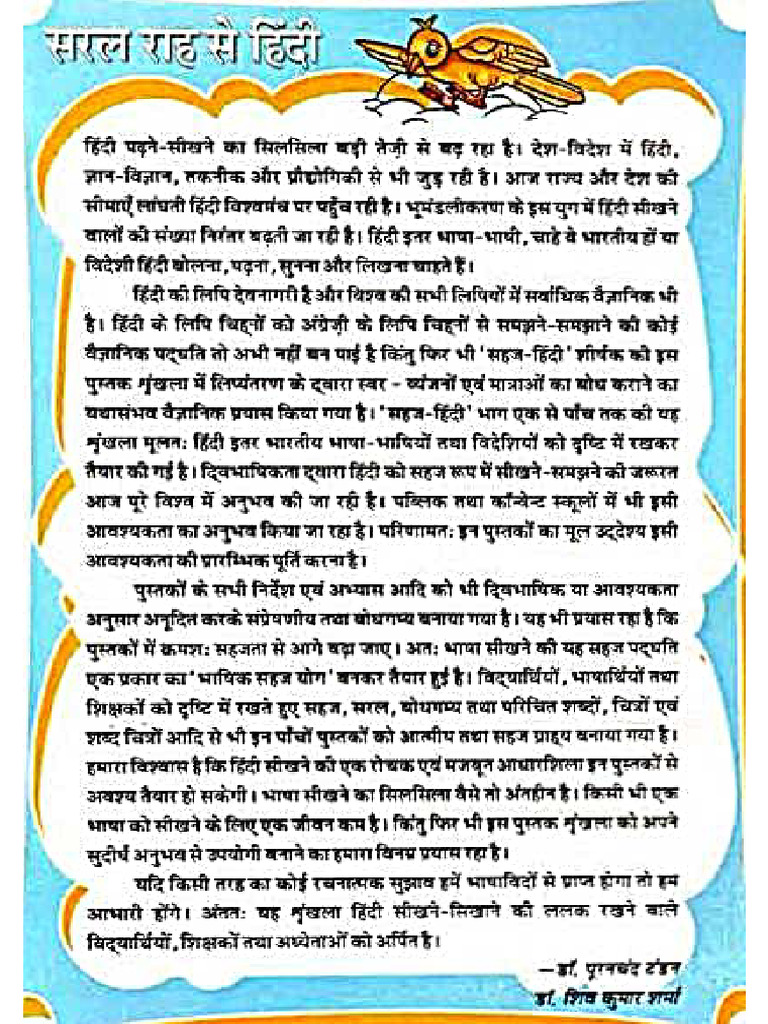 सरल राह से हिंदी
हिंदी पढ़ने-सीखने का सिलसिला बड़ी तेज़ी से बढ़ रहा है। देश-विदेश में हिंदी,
ज्ञान-विज्ञान, तकनीक और प्रौद्योगिकी से भी जुड़ रही है। आज राज्य और देश की
सीमाएँ लांघती हिंदी विश्वमंच पर पहुँच रही है। भूमंडलीकरण के इस युग में हिंदी सीखने
वालों की संख्या निरंतर बढ़ती जा रही है। हिंदी इतर भाषा-भाषी, चाहे वे भारतीय हों या
विदेशी हिंदी बोलना, पढ़ना, सुनना और लिखना चाहते हैं।
हिंदी की लिपि देवनागरी है और विश्व की सभी लिपियों में सर्वाधिक वैज्ञानिक भी
है। हिंदी के लिपि चिह्नों को अंग्रेज़ी के लिपि चिह्नों से समझने-समझाने की कोई
वैज्ञानिक पद्धति तो अभी नहीं बन पाई है किंतु फिर भी 'सहज-हिंदी' शीर्षक की इस
पुस्तक शृंखला में लिप्यंतरण के द्वारा स्वर - व्यंजनों एवं मात्राओं का बोध कराने का
यथासंभव वैज्ञानिक प्रयास किया गया है। 'सहज-हिंदी' भाग एक से पाँच तक की यह
शृंखला मूलत: हिंदी इतर भारतीय भाषा-भाषियों तथा विदेशियों को दृष्टि में रखकर
तैयार की गई है। द्विभाषिकता द्वारा हिंदी को सहज रूप में सीखने-समझने की जरूरत
आज पूरे विश्व में अनुभव की जा रही है। पब्लिक तथा कॉन्वेन्ट स्कूलों में भी इसी
आवश्यकता का अनुभव किया जा रहा है। परिणामत: इन पुस्तकों का मूल उद्देश्य इसी
आवश्यकता की प्रारम्भिक पूर्ति करना है।
पुस्तकों के सभी निर्देश एवं अभ्यास आदि को भी द्विभाषिक या आवश्यकता
अनुसार अनूदित करके संप्रेषणीय तथा बोधगम्य बनाया गया है। यह भी प्रयास रहा है कि
पुस्तकों में क्रमश: सहजता से आगे बढ़ा जाए। अत: भाषा सीखने की यह सहज पद्धति
एक प्रकार का 'भाषिक सहज योग' बनकर तैयार हुई है। विद्यार्थियों, भाषार्थियों तथा
शिक्षकों को दृष्टि में रखते हुए सहज, सरल, बोधगम्य तथा परिचित शब्दों, चित्रों एवं
शब्द चित्रों आदि से भी इन पाँचों पुस्तकों को आत्मीय तथा सहज ग्राह्य बनाया गया है।
हमारा विश्वास है कि हिंदी सीखने की एक रोचक एवं मजबूत आधारशिला इन पुस्तकों से
अवश्य तैयार हो सकेगी। भाषा सीखने का सिलसिला वैसे तो अंतहीन है। किसी भी एक
भाषा को सीखने के लिए एक जीवन कम है। किंतु फिर भी इस पुस्तक शृंखला को अपने
सुदीर्घ अनुभव से उपयोगी बनाने का हमारा विनम्र प्रयास रहा है।
यदि किसी तरह का कोई रचनात्मक सुझाव हमें भाषाविदों से प्राप्त होगा तो हम
आभारी होंगे। अंतत: यह शृंखला हिंदी सीखने-सिखाने की ललक रखने वाले
विद्यार्थियों, शिक्षकों तथा अध्येताओं को अर्पित है।
—डॉ. पूरनचंद टंडन
डॉ. शिव कुमार शर्मा